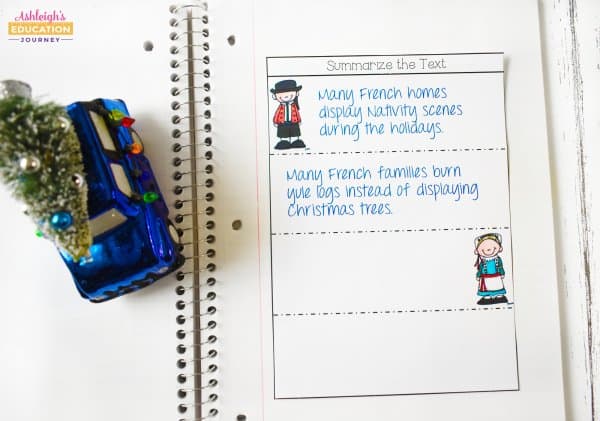 Ashleigh's
EDUCATION
JOURNEY
Summarize the Text
Many French homes
display Nativity scenes
during the holidays.
Many French families burn
yule logs instead of displaying
Christmas trees.